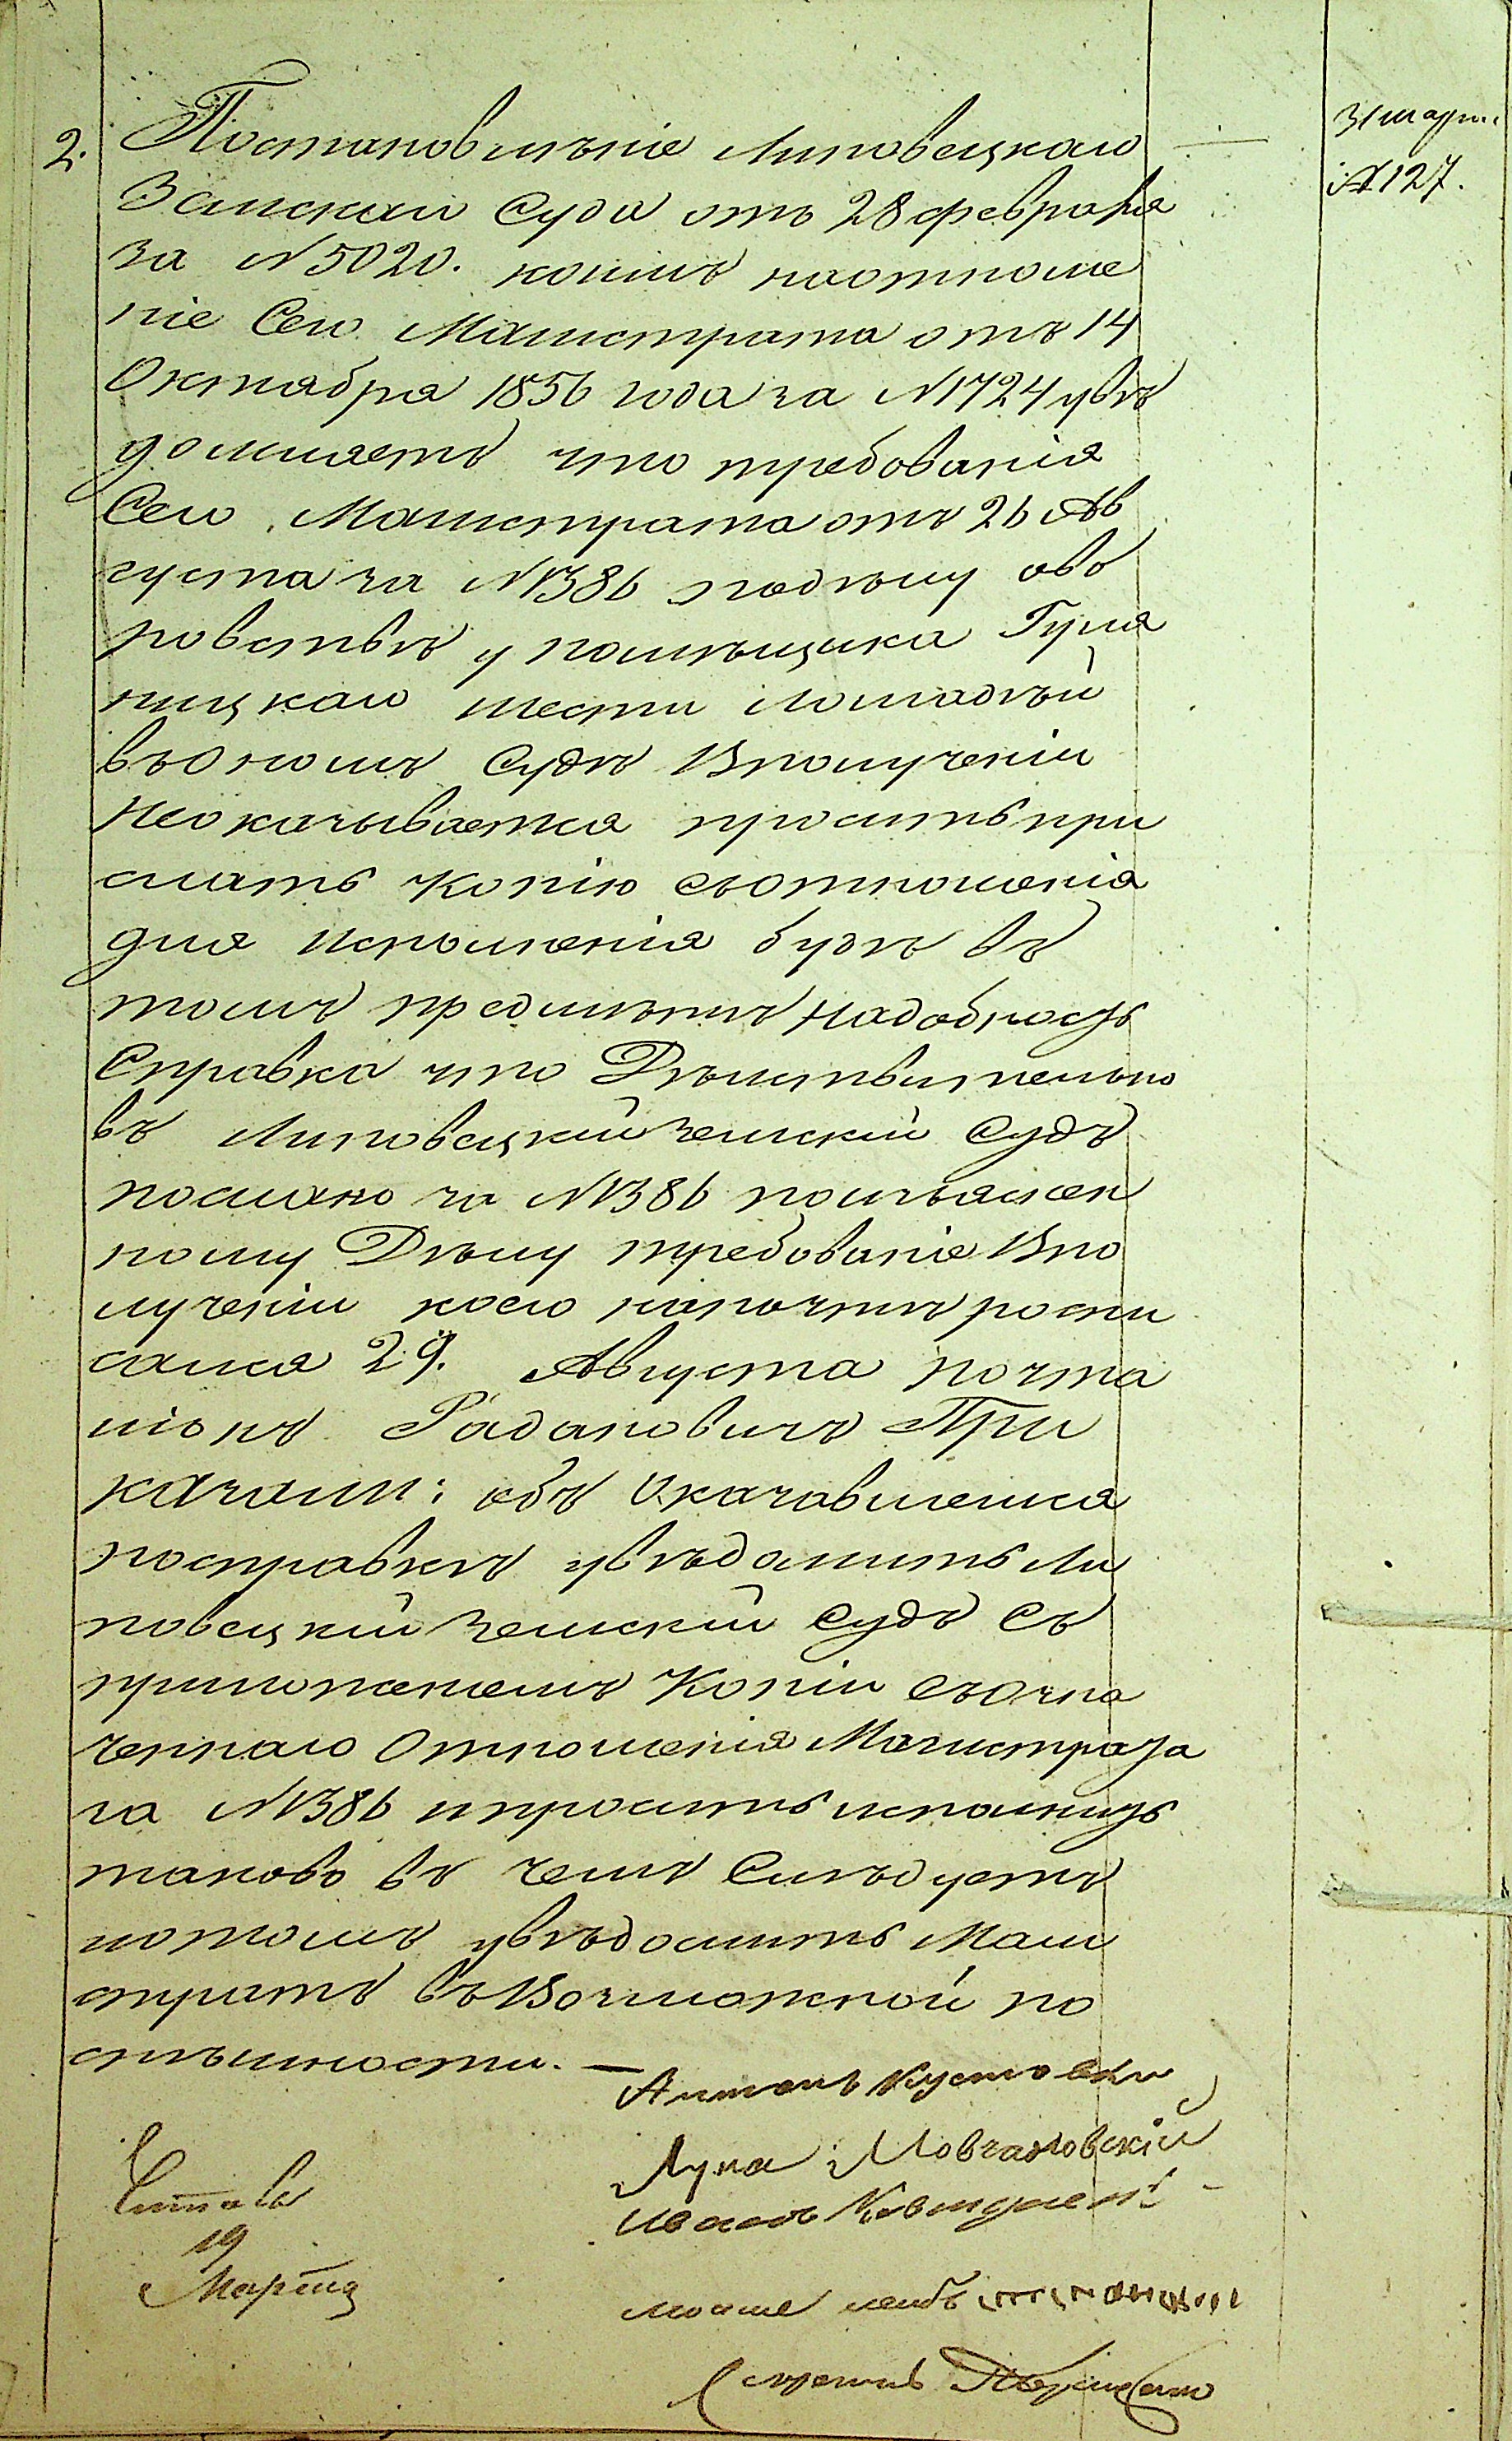 2. Постановленіе Липовецкаго
31 марта
Земскаго Суда отъ 28 февраля
№ 127.
за № 5020. коимъ наотноше
ніе Сего Магистрата отъ 14
Октября 1856 года за № 1724 увѣ
домляетъ что требованія
Сего Магистрата отъ 26 Ав
густа за № 1386 подѣлу ово
ровствѣ у помѣщика Гуля
ницкаго шести лошадѣй
въОномъ Судѣ Вполученіи
Неоказывается проситъ при
слать копію съотношенія
для исполненія будѣ въ
томъ предмѣтѣ надобность
Справка что Дѣйствительно
въ Липовецкій земскій Судъ
послано за № 1386 поизъяснен
ному Дѣлу требованіе Впо
лученіи коего напочтѣ роспи
сался 29. Августа почта
ліонъ Радановичъ При
казали: объ Оказавшемся
посправкѣ увѣдомить Ли
повецкій земскій Судъ съ
приложенемъ Копіи съозна
ченнаго Отношенія Магистрата
за № 1386 ипросить исполнить
таково въ чемъ Слѣдуетъ
ипотомъ увѣдомить Маги
стратъ въВозможной по
спѣшности. —
Антонъ Кустовски
Лука Мовчановскій
Иванъ
мошие лейбъ
Читалъ
19
Марта